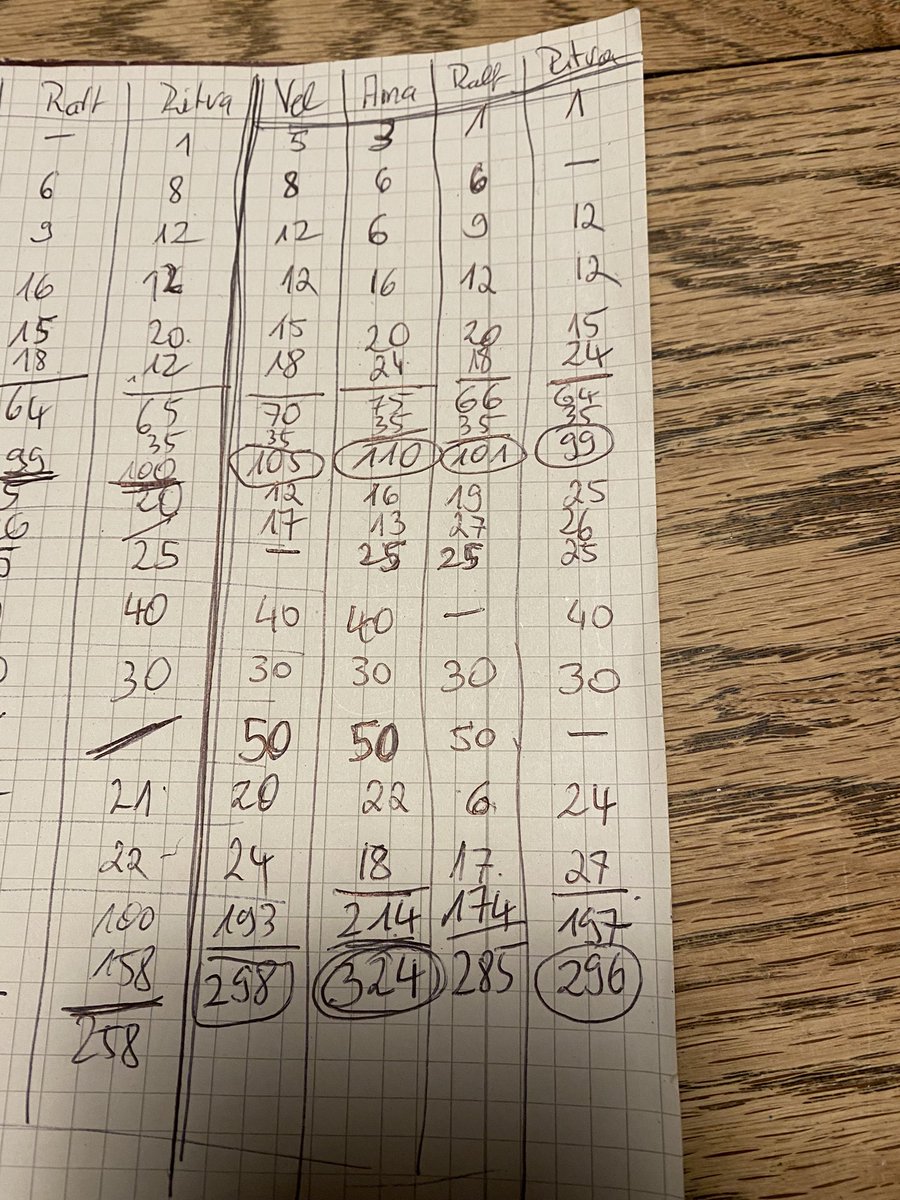 Ralf Ritva Vel Ama Ralf Ritva
— 1 5 3 1 1
6 8 8 6 6 —
9 12 12 6 9 12
16 12 12 16 12 12
15 20 15 20 20 15
18 12 18 24 18 24
64 65 70 75 66 64
35 35 35 35 35
99 100 105 110 101 99
5 20 12 16 19 25
6 — 17 13 27 26
5 25 — 25 25 25
40 40 40 — 40
30 30 30 30 30
— 50 50 50 —
21 20 22 6 24
22 24 18 17 27
100 193 214 174 197
158 298 324 285 296
258